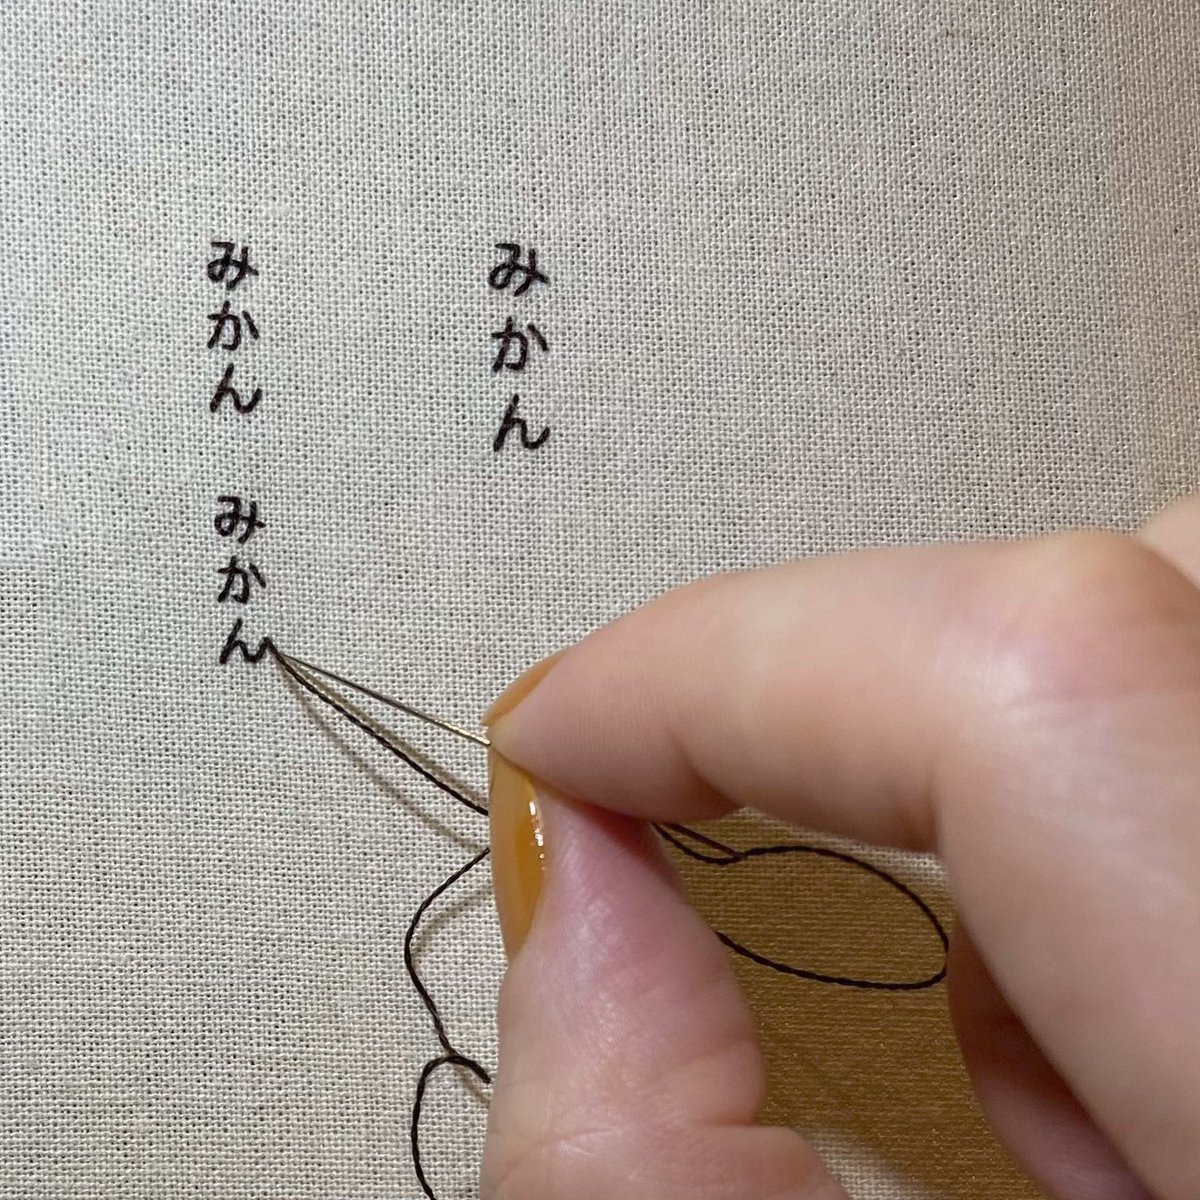 みかん
みかん
みかん